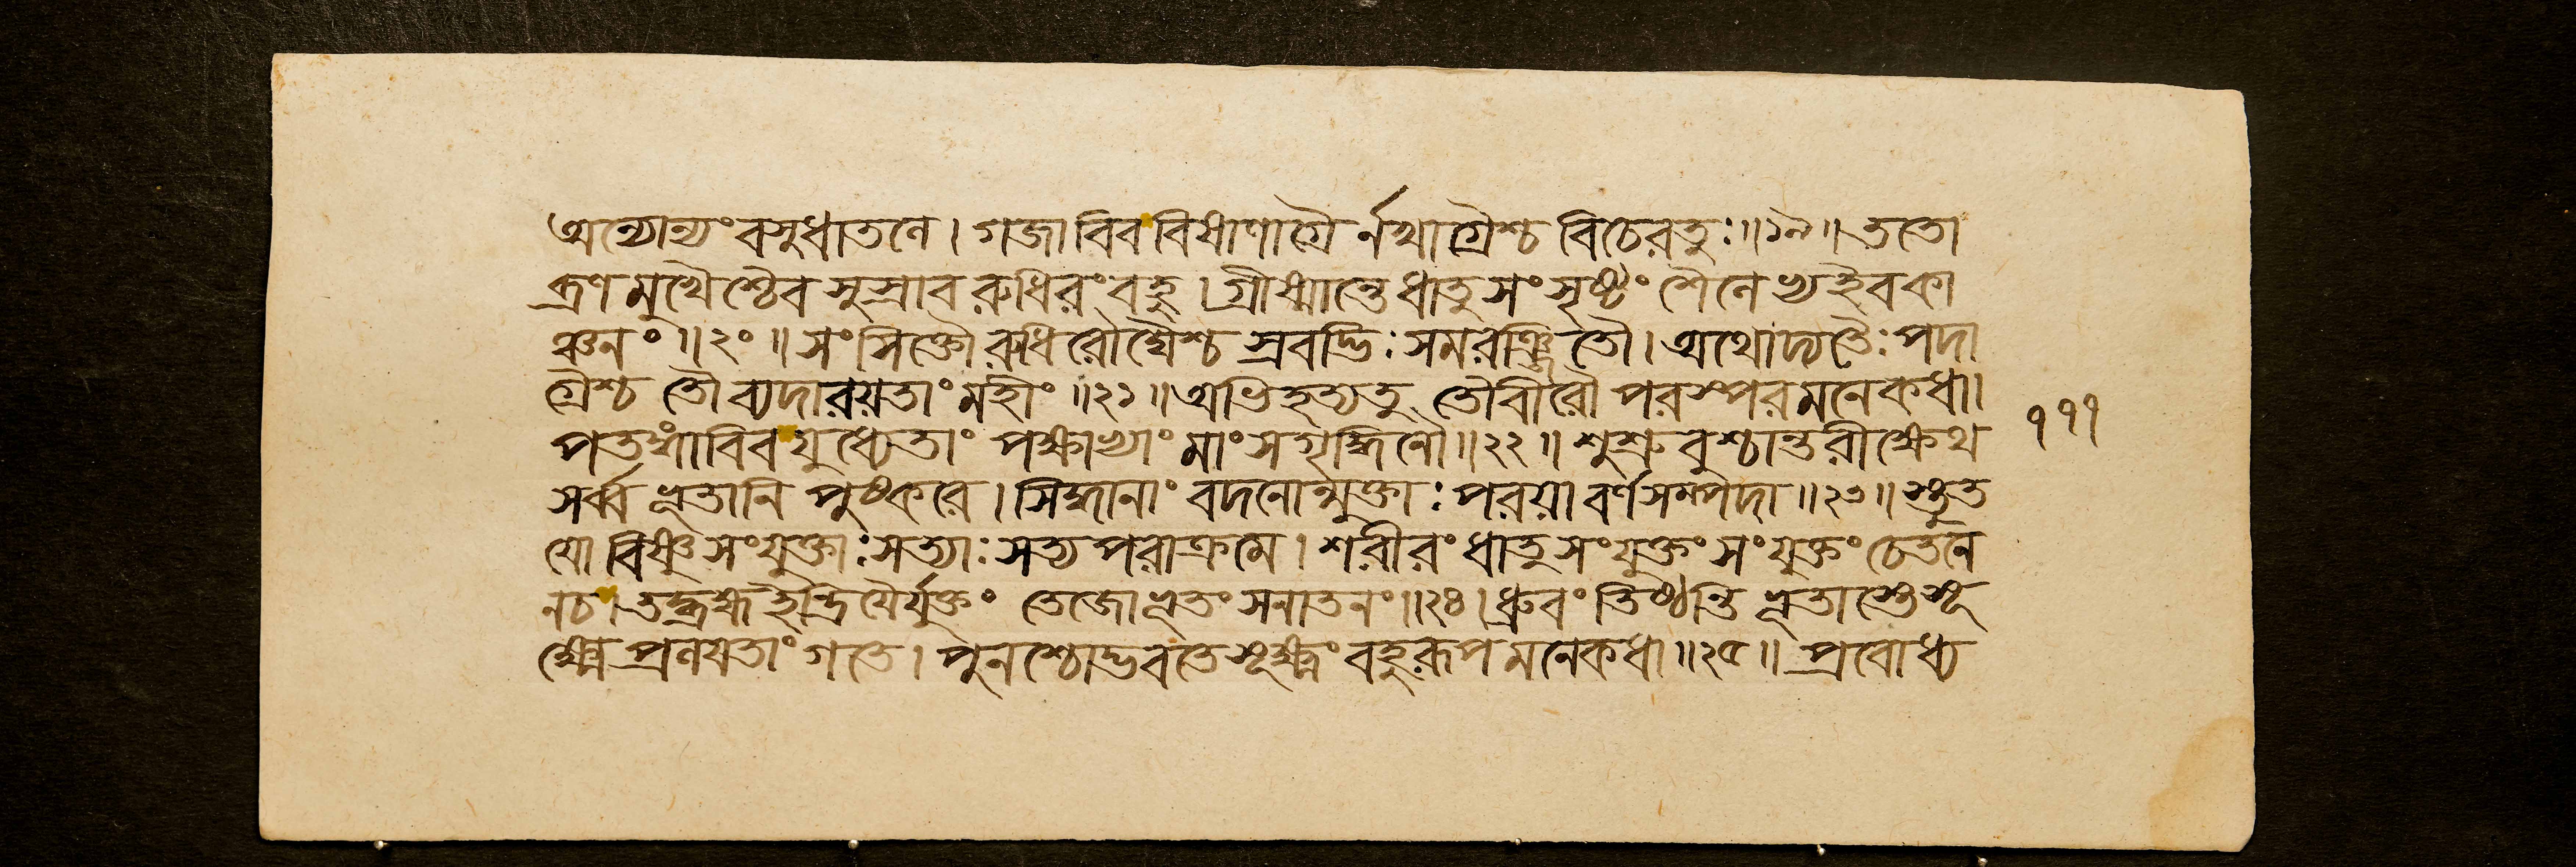 অন্যোন্যং বসুধাতলে। গজাবিব বিষাণাগ্রৈর্নখাগ্রৈশ্চ বিচেরতুঃ॥১৯॥ ততো
ব্রণমুখৈশ্চৈব সুস্রাব রুধিরং বহু। গ্রীষ্মান্তে ধাতুসংসৃষ্টং শৈলেভ্য ইব কা
ঞ্চনং॥২০॥ সংসিক্তৌ রুধিরৌঘৈশ্চ স্রবদ্ভিঃ সমরঞ্জিতৌ। অথোদ্যতৈঃ পদা
গ্রৈশ্চ তৌ ব্যদারয়তাং মহীং॥২১॥ অভিহত্য তু তৌ বীরৌ পরস্পরমনেকধা।
পতগাবিব যুধ্যেতাং পক্ষাভ্যাং মাংসগৃদ্ধিনৌ॥২২॥ শুশ্রুবুশ্চান্তরীক্ষেথ
সর্ব্বভূতানি পুষ্করে। সিদ্ধানাং বদনোন্মুক্তাঃ পরয়া বর্ণসম্পদা॥২৩॥ স্তুত
যো বিষ্ণুসংযুক্তাঃ সত্যাঃ সত্যপরাক্রমে। শরীরং ধাতুসংযুক্তং সংযুক্তং চেতনে
ন চ। তদ্ব্রহ্ম ইন্দ্রিয়ৈর্যুক্তং তেজোভূতং সনাতনং॥২৪। ধ্রুবং তিষ্ঠন্তি ভূতাস্তে সূ
ক্ষ্মে প্রলয়তাং গতে। পুনশ্চোদ্ভবতে সূক্ষ্মং বহুরূপমনেকধা॥২৫॥ প্রবোধ্য
১৭৭